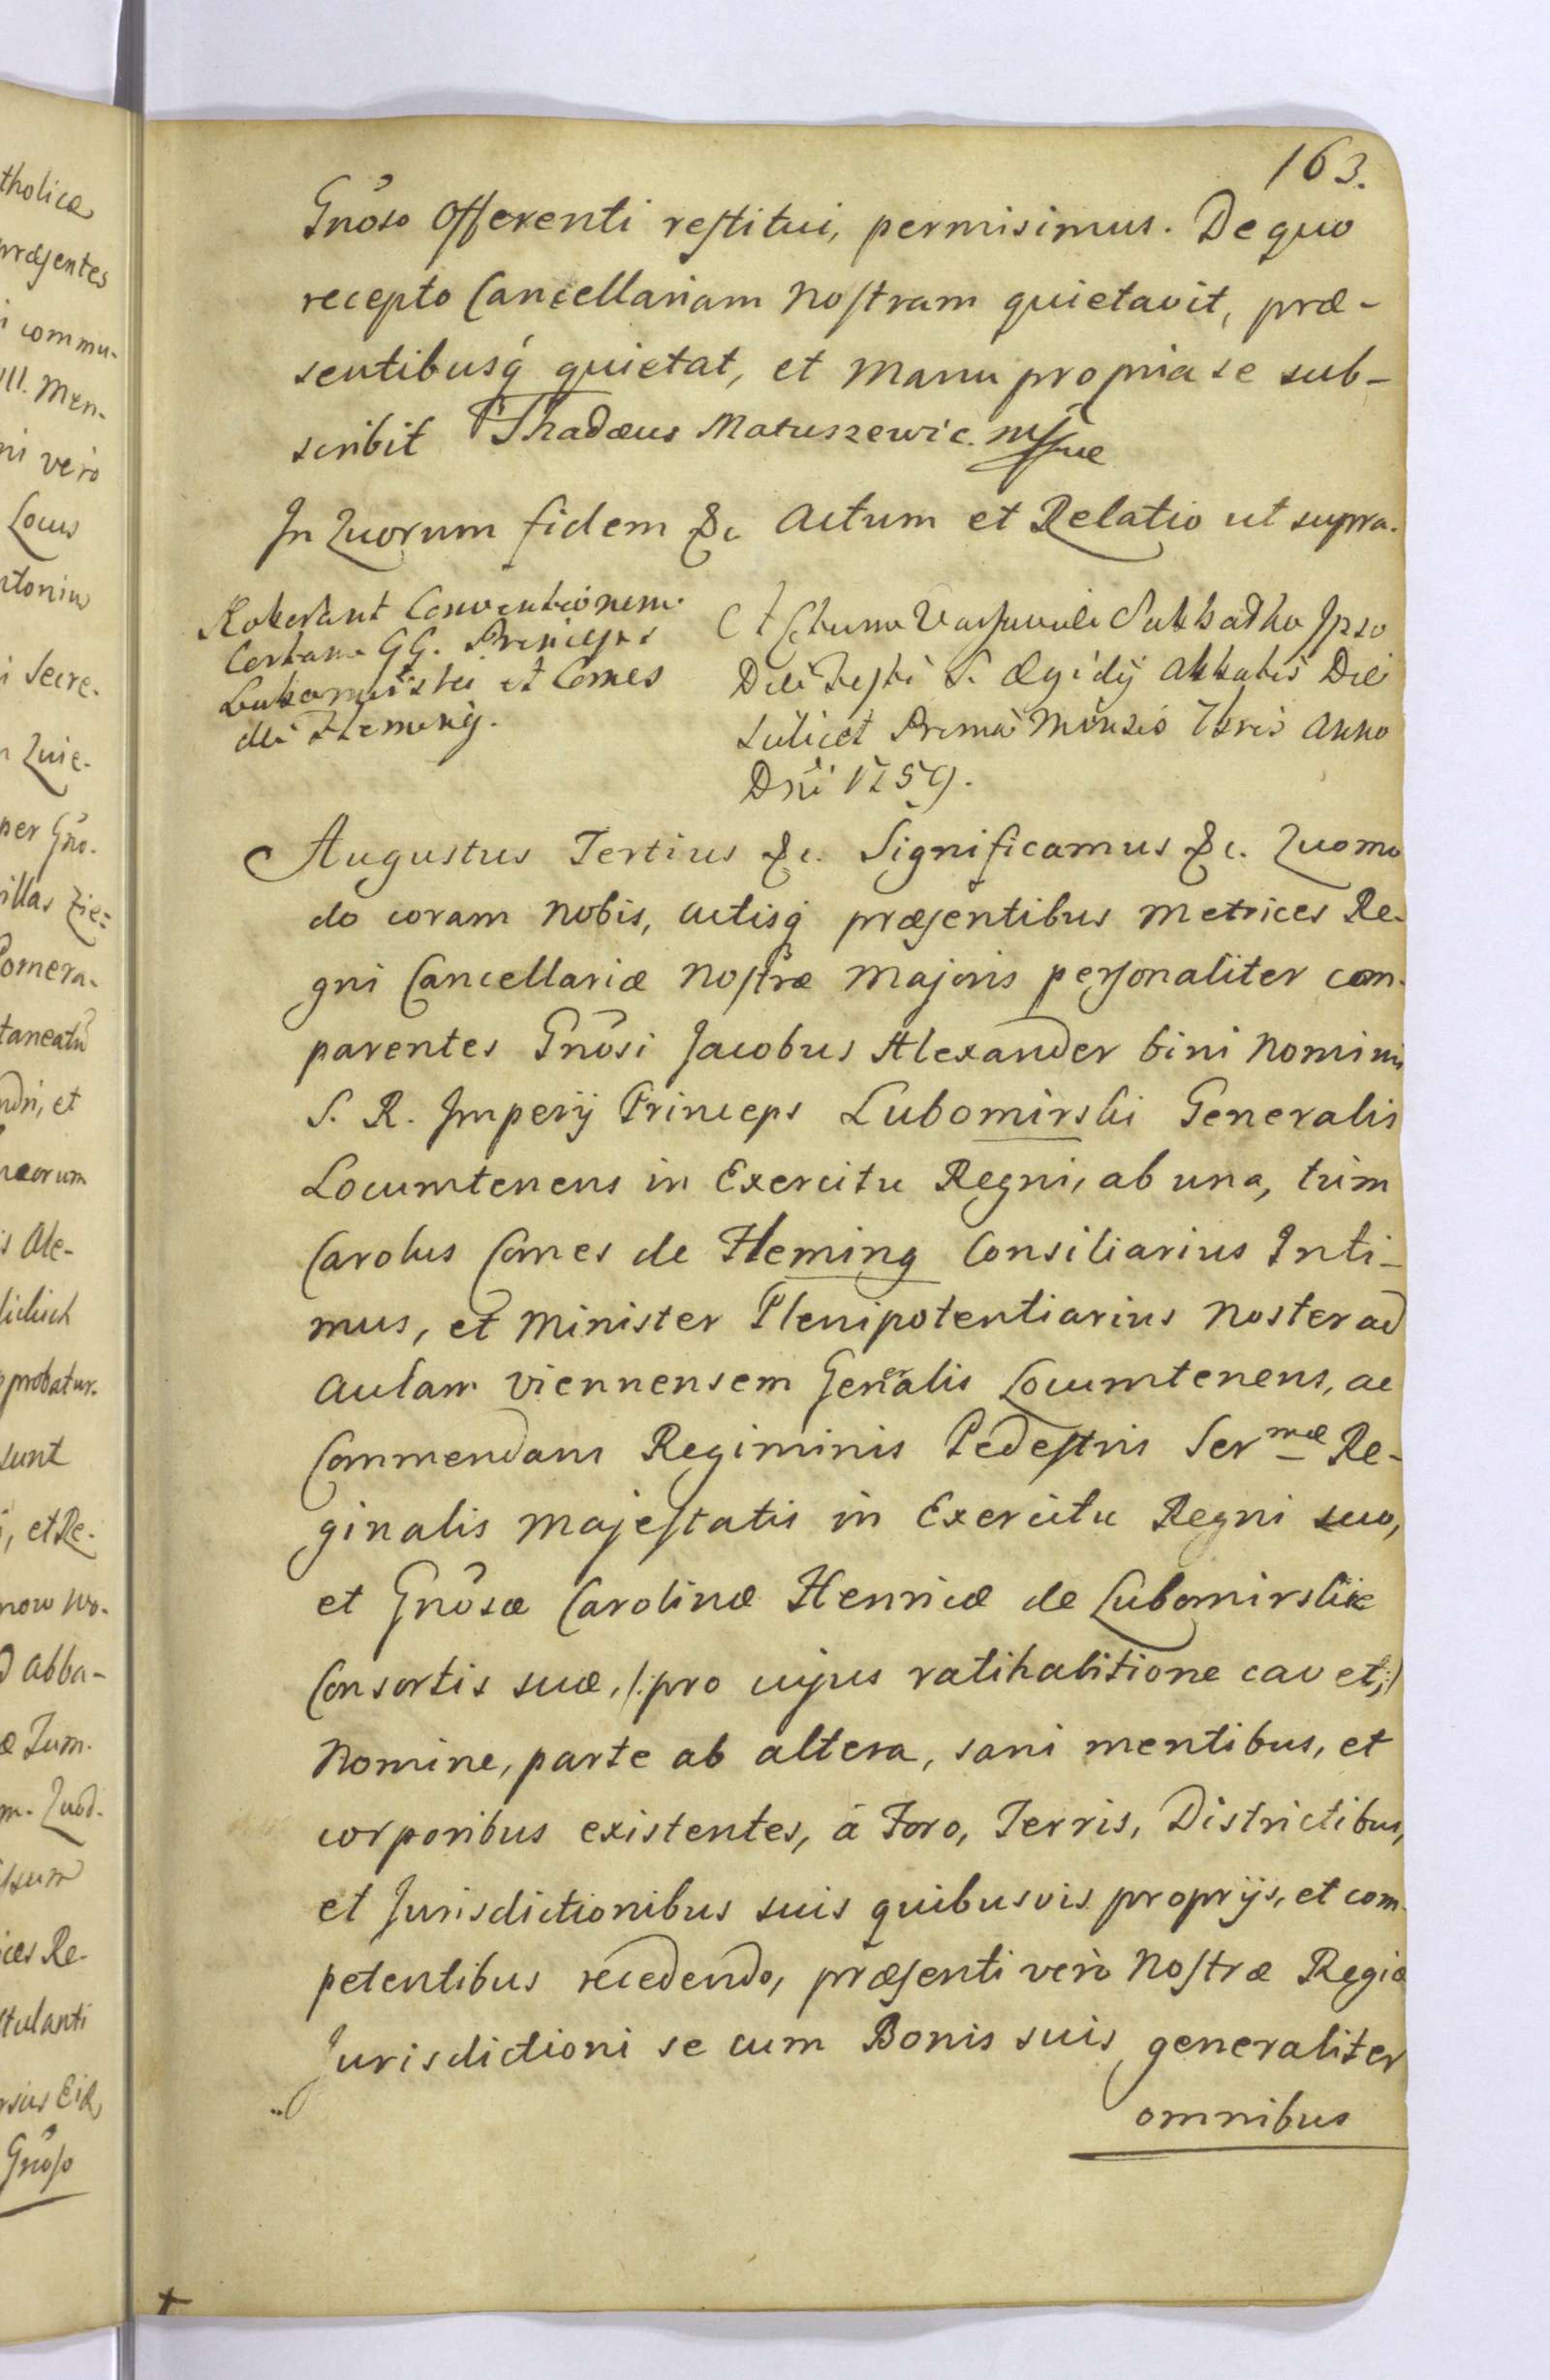 tholicæ
præsentes
i commu-
ill. Men-
ni verò
Locus
ntonius
i Secre-
n Quie-
per Gno-
villas Zie=
Pomera-
taneatū
ndri, et
neorum
is Ale-
probatur.
sunt
i, et Re-
now Wo-
d Abba-
æ Tum-
m. Quod-
ices Re-
stulanti
rsius Eid,
Gnoso
163.
Gnoso Offerenti restitui, permisimus. De quo
recepto Cancellariam Nostram quietavit, præ-
sentibusq́ quietat, et Manu propria se sub-
scribit Thadæus Matuszewic. mssue
In Quorum fidem &c Actum et Relatio ut supra.
Roborant Conventionem
Certam GG. Princeps
Lubomirski et Comes
de Fleming.
Actum Varsaviæ Sabbatho Ipso
Die Festi S. Ægidij Abbatis Die
Scilicet Prima Mensis 7bris Anno
Dni 1759.
Augustus Tertius &c. Significamus &c. Quomo
do coram Nobis, Actisq́ præsentibus Metrices Re-
gni Cancellariæ Nostræ Majoris personaliter com-
parentes Gnosi Jacobus Alexander bini Nominis
S. R. Imperij Princeps Lubomirski Generalis
Locumtenens in Exercitu Regni, ab una, tum
Carolus Comes de Fleming Consiliarius Inti-
mus, et Minister Plenipotentiarius Noster ad
Aulam Viennensem Generalis Locumtenens, ac
Commendans Regiminis Pedestris Ser^mæ Re-
ginalis Majestatis in Exercitu Regni suo,
et Gnosæ Carolinæ Henricæ de Lubomirskie
Consortis suæ, /:pro cujus ratihabitione cavet;/
Nomine, parte ab altera, sani mentibus, et
corporibus existentes, à Foro, Terris, Districtibus,
et Jurisdictionibus suis quibusvis proprijs, et com-
petentibus recedendo, præsenti verò Nostræ Regiæ
Jurisdictioni se cum Bonis suis generaliter
omnibus